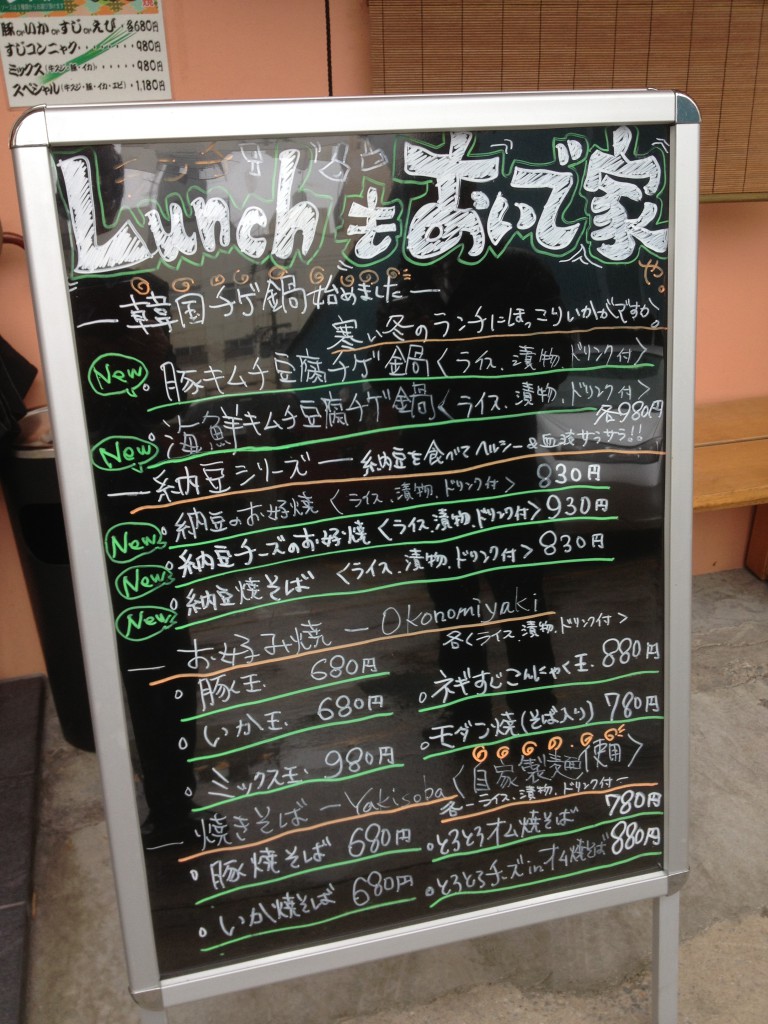 豚orいかorすじorえび・各680円
すじコンニャク・・・・・・・・・980円
ミックス(牛スジ・豚・イカ)・・・・・980円
スペシャル(牛スジ・豚・イカ・エビ)・1,180円
Lunchもおいで家
や。
—韓国チゲ鍋始めました—
寒い冬のランチにほっこりいかがですか。
New 豚キムチ豆腐チゲ鍋〈ライス、漬物、ドリンク付〉
New 海鮮キムチ豆腐チゲ鍋〈ライス、漬物、ドリンク付〉
各980円
—納豆シリーズ— 納豆を食べてヘルシー&血液サラサラ!!
New 納豆のお好焼〈ライス、漬物、ドリンク付〉830円
New 納豆チーズのお好焼〈ライス、漬物、ドリンク付〉930円
New 納豆焼そば〈ライス、漬物、ドリンク付〉830円
—お好み焼—Okonomiyaki
各〈ライス、漬物、ドリンク付〉
豚玉 680円
いか玉 680円
ミックス玉 980円
ネギすじこんにゃく玉 880円
モダン焼(そば入り) 780円
—焼きそば—Yakisoba〈自家製麺使用〉
各—ライス、漬物、ドリンク付—
豚焼そば 680円
いか焼そば 680円
とろとろオム焼そば 780円
とろとろチーズinオム焼そば 880円